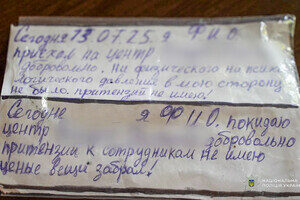 Сегодня 13.07.25. я Ф И О
приехал на центр
добровольно. Ни физического на психо
логического давления в мою сторону
не было, притензий не имею!
Сегодне я ФИО. покидаю
центр добровольно
притензии к сотрудникам не имею
ценые вещи забрал!
НАЦІОНАЛЬНА
ПОЛІЦІЯ УКРАЇНИ